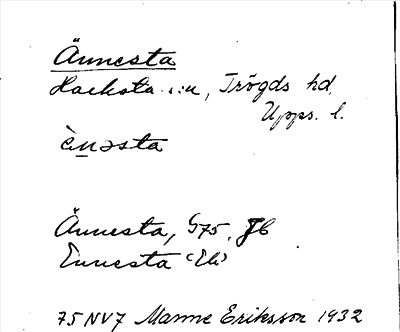 Ännesta
Hacksta s:n, Trögds hd,
Upps. l.
ènəsta
Ännesta, G75. Jb
Ennesta (Ek)
75 NV7 Manne Eriksson 1932